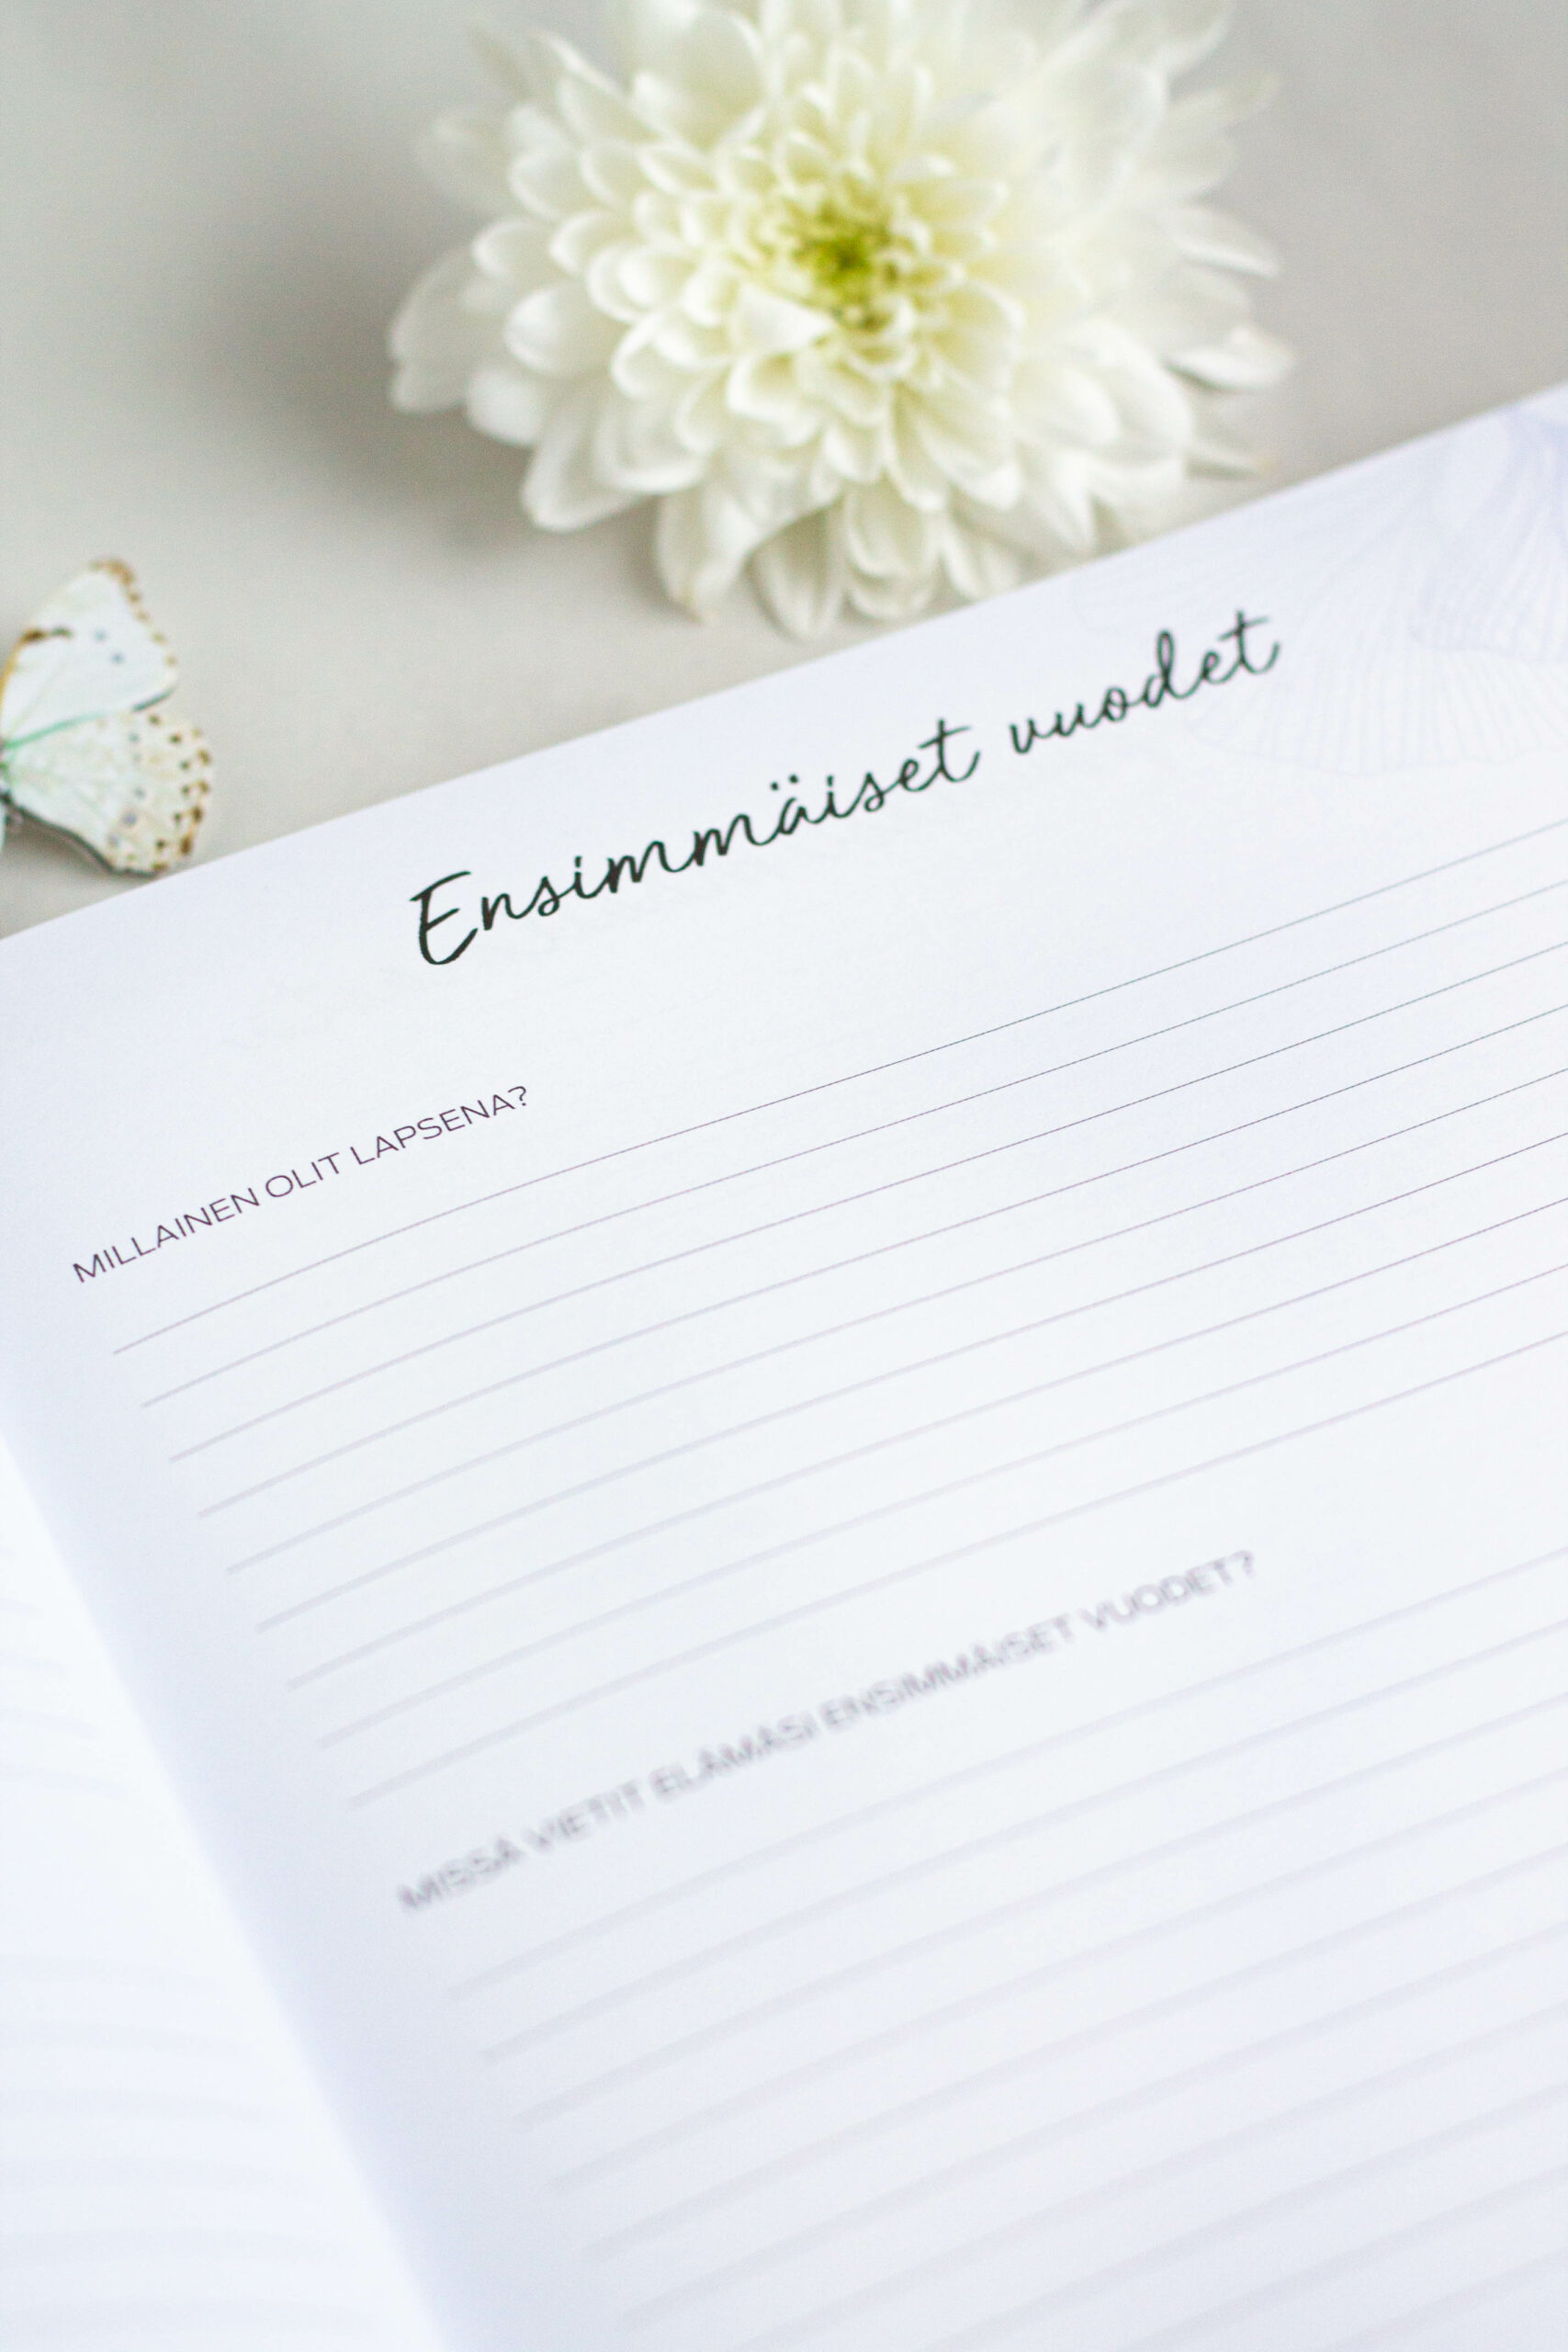 Ensimmäiset vuodet
MILLAINEN OLIT LAPSENA?
MISSÄ VIETIT ELÄMÄSI ENSIMMÄISET VUODET?